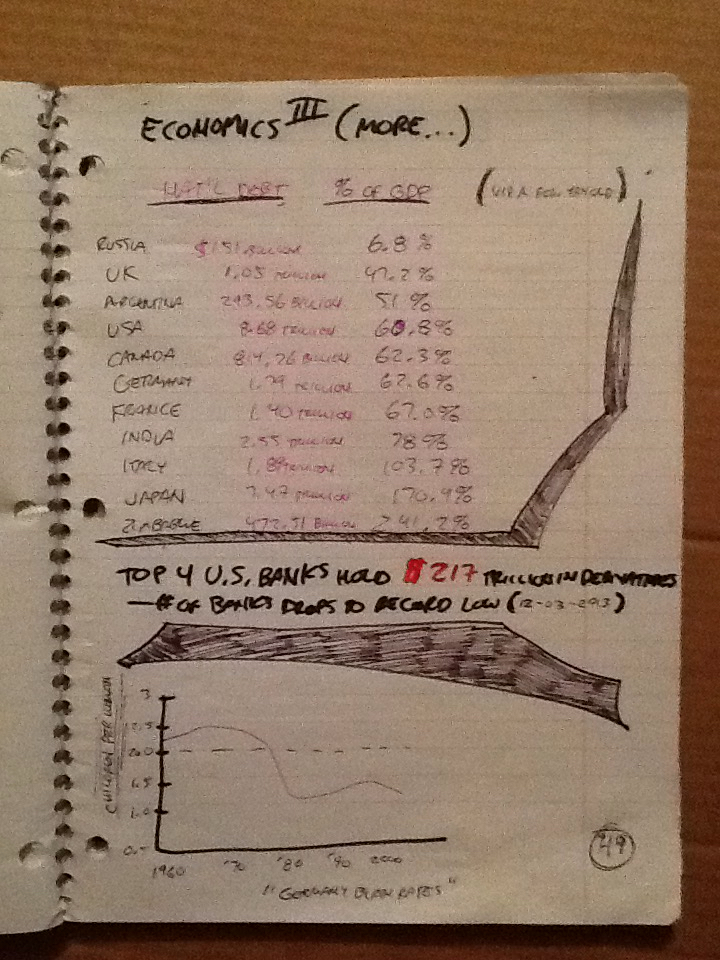 ECONOMICS III (MORE...)
NAT'L DEBT % OF GDP
RUSSIA $151 BILLION 6.8%
UK 1.05 TRILLION 47.2%
ARGENTINA 293.56 BILLION 51%
USA 8.68 TRILLION 60.8%
CANADA 814.76 BILLION 62.3%
GERMANY 1.79 TRILLION 62.6%
FRANCE 1.40 TRILLION 67.0%
INDIA 2.55 TRILLION 78%
ITALY 1.89 TRILLION 103.7%
JAPAN 7.47 TRILLION 170.4%
ZIMBABWE 472.31 BILLION 241.2%
TOP 4 U.S. BANKS HOLD $217 TRILLION IN DERIVATIVES
— # OF BANKS DROPS TO RECORD LOW (12-03-2013)
CHILDREN PER WOMAN
3
2.5
2.0
1.5
1.0
0.5
1960 '70 '80 '90 2000
"GERMANY BIRTH RATES"
49